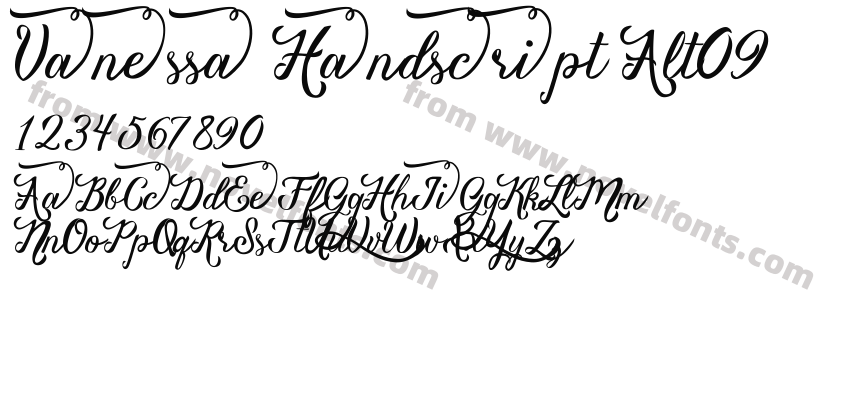 Vanessa Handscript Alt09
1234567890
AaBbCcDdEeFfGgHhIiJjKkLlMm
NnOoPpQqRrSsTtUuVvWwXxYyZz
from www.novelfonts.com
from www.novelfonts.com